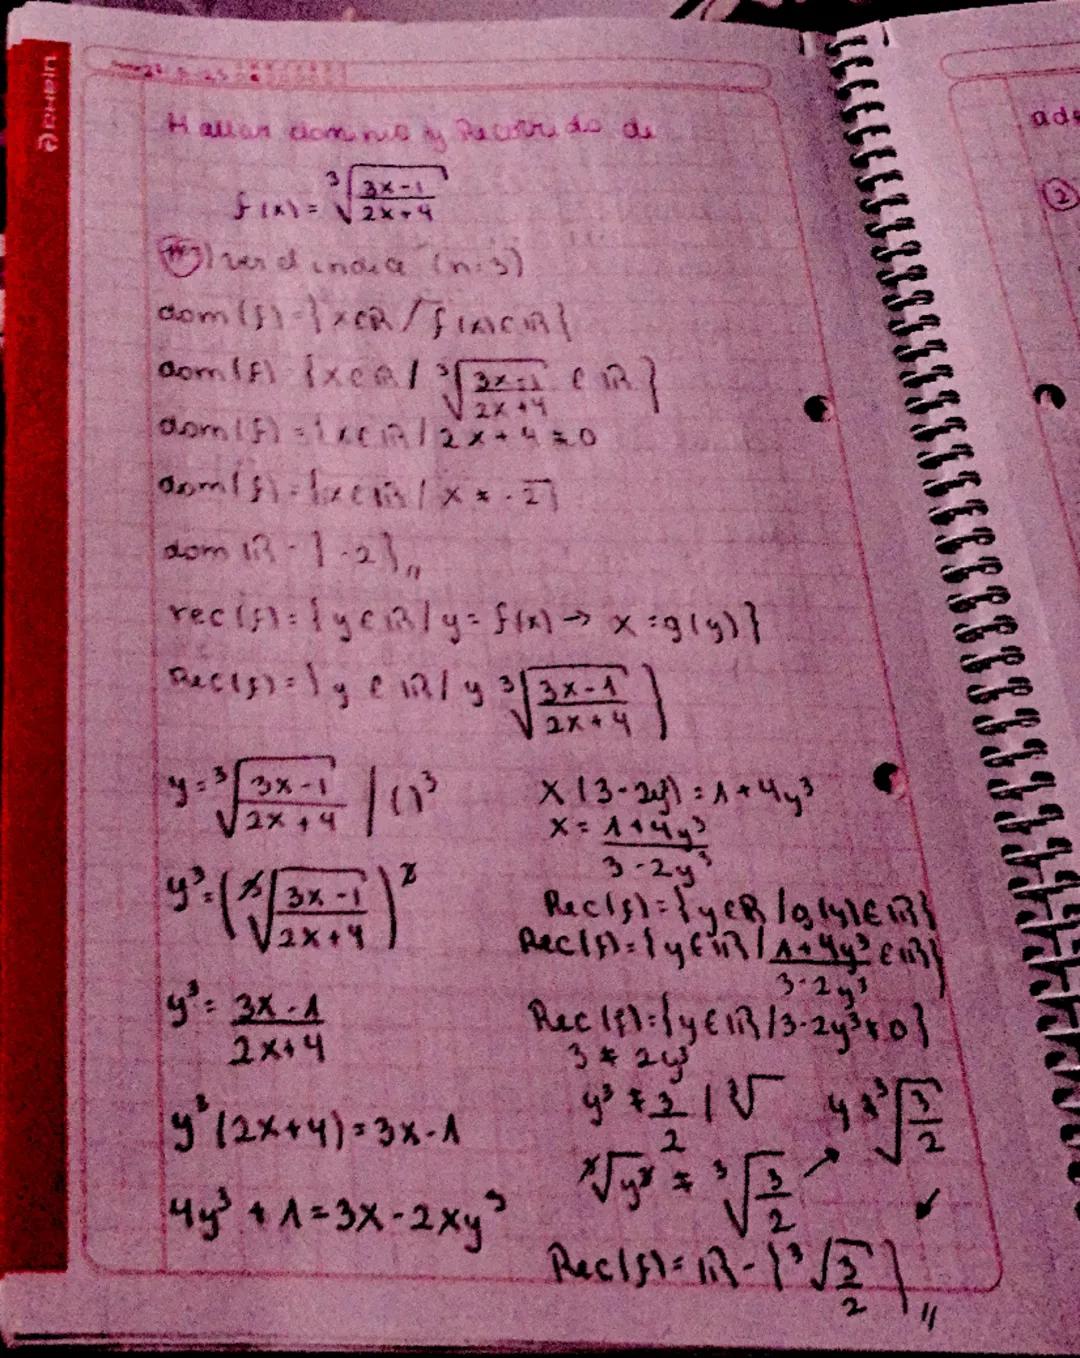 Hallar dominio y Recorrido de
f(x) = ∛((3x-1)/(2x+4))
ver el indice (n=3)
dom(f) = {x∈R / f(x)∈R}
dom(f) = {x∈R / ∛((3x-1)/(2x+4)) ∈ R}
dom(f) = {x∈R / 2x+4 ≠ 0
dom(f) = {x∈R / x ≠ -2}
dom R - {-2},,
rec(f) = {y∈R / y = f(x) → x = g(y)}
Rec(f) = {y∈R / y ∛((3x-1)/(2x+4))}
y = ∛((3x-1)/(2x+4)) / ()³
y³ = (∛((3x-1)/(2x+4)))³
y³ = (3x-1)/(2x+4)
y³(2x+4) = 3x-1
4y³ + 1 = 3x - 2xy³
x(3-2y³) = 1+4y³
x = (1+4y³)/(3-2y³)
Rec(f) = {y∈R / g(y)∈R}
Rec(f) = {y∈R / (1+4y³)/(3-2y³) ∈ R}
Rec(f) = {y∈R / 3-2y³ ≠ 0}
3 ≠ 2y³
y³ ≠ 3/2 / ∛
∛y³ ≠ ∛(3/2) → y ≠ ∛(3/2)
Rec(f) = R - {∛(3/2)},,